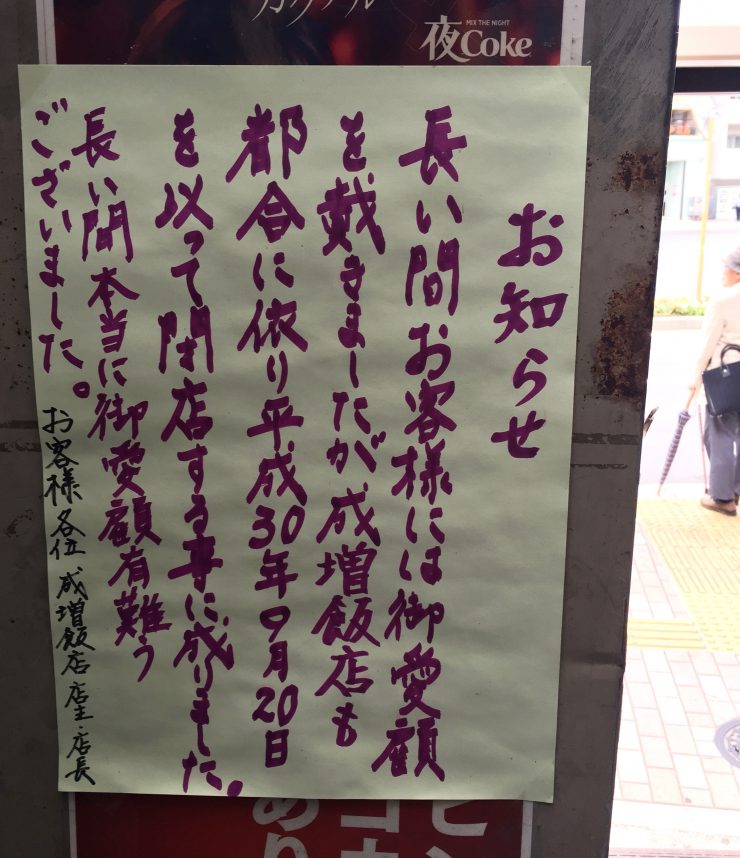 カクテル
MIX THE NIGHT
夜Coke
お知らせ
長い間お客様には御愛顧
を戴きましたが成増飯店も
都合に依り平成30年9月20日
を以って閉店する事に成りました。
長い間本当に御愛顧有難う
ございました。
お客様各位 成増飯店 店主・店長
あり